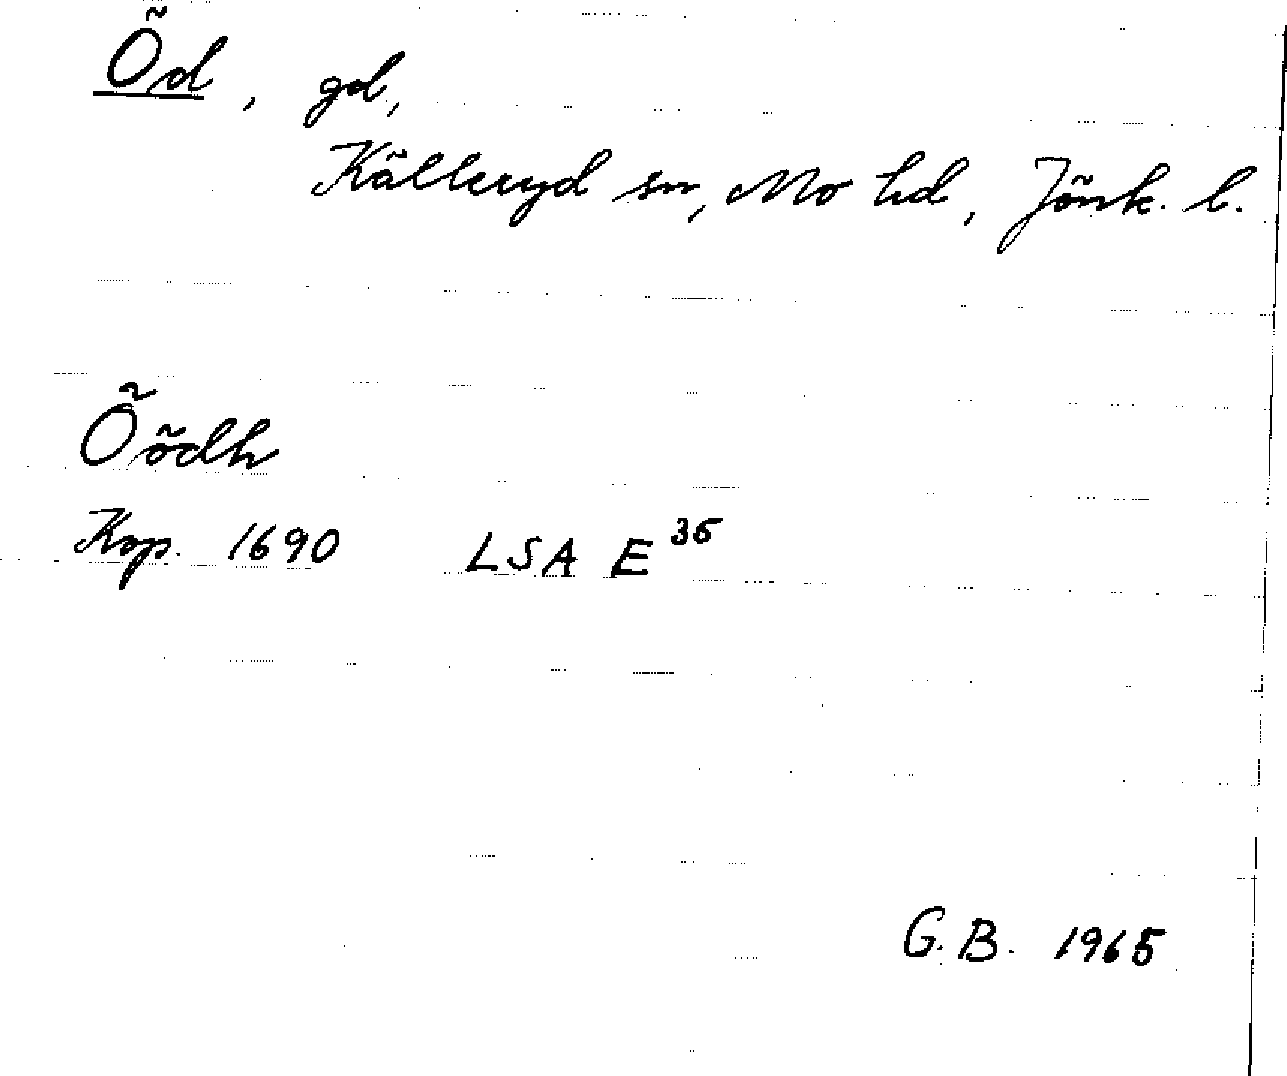 Öd, gd,
Källeryd sn, Mo hd, Jönk. l.
Öödh
Kop. 1690 LSA E 35
G.B. 1965